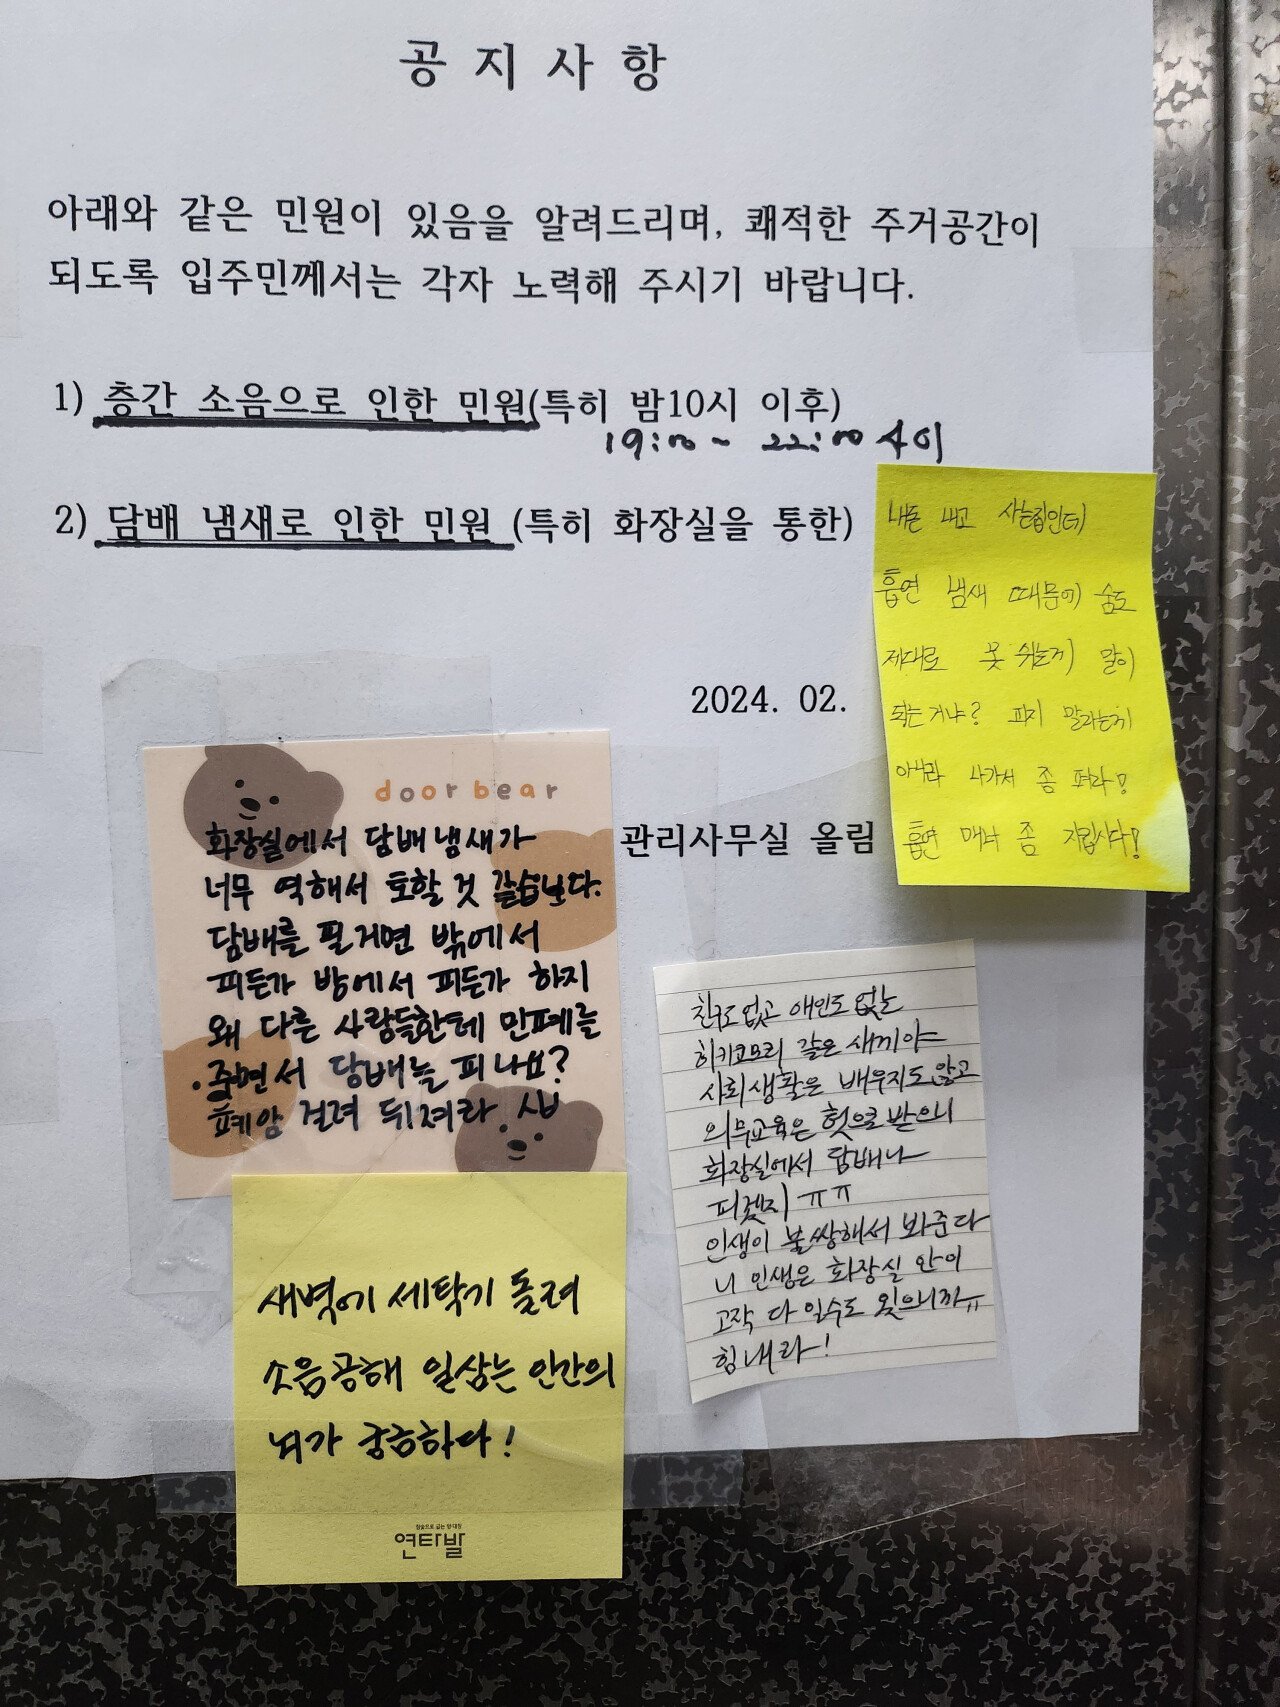 공지사항
아래와 같은 민원이 있음을 알려드리며, 쾌적한 주거공간이
되도록 입주민께서는 각자 노력해 주시기 바랍니다.
1) 층간 소음으로 인한 민원(특히 밤10시 이후)
19:00~ 22:00 사이
2) 담배 냄새로 인한 민원 (특히 화장실을 통한)
2024. 02.
관리사무실 올림
내돈 내고 사는집인데
흡연 냄새 때문에 숨도
제대로 못 쉬는게 말이
되는거냐? 피지 말라는게
아니라 나가서 좀 펴라!
흡연 매너 좀 지킵시다!
door bear
화장실에서 담배냄새가
너무 역해서 토할 것 같습니다.
담배를 필거면 밖에서
피든가 방에서 피든가 하지
왜 다른 사람들한테 민폐를
주면서 담배를 피나요?
폐암 걸려 뒤져라 시바
친구도 없고 애인도 없는
히키코모리 같은 새끼야
사회생활은 배우지도 않고
의무교육은 헛으로 받으니
화장실에서 담배나
피겠지 ㅠㅠ
인생이 불쌍해서 봐준다
니 인생은 화장실 안이
고작 다 일수도 있으니까ㅠ
힘내라!
새벽에 세탁기 돌려
소음공해 일삼는 인간의
뇌가 궁금하다!
참숯으로 굽는 양·대창
연타발